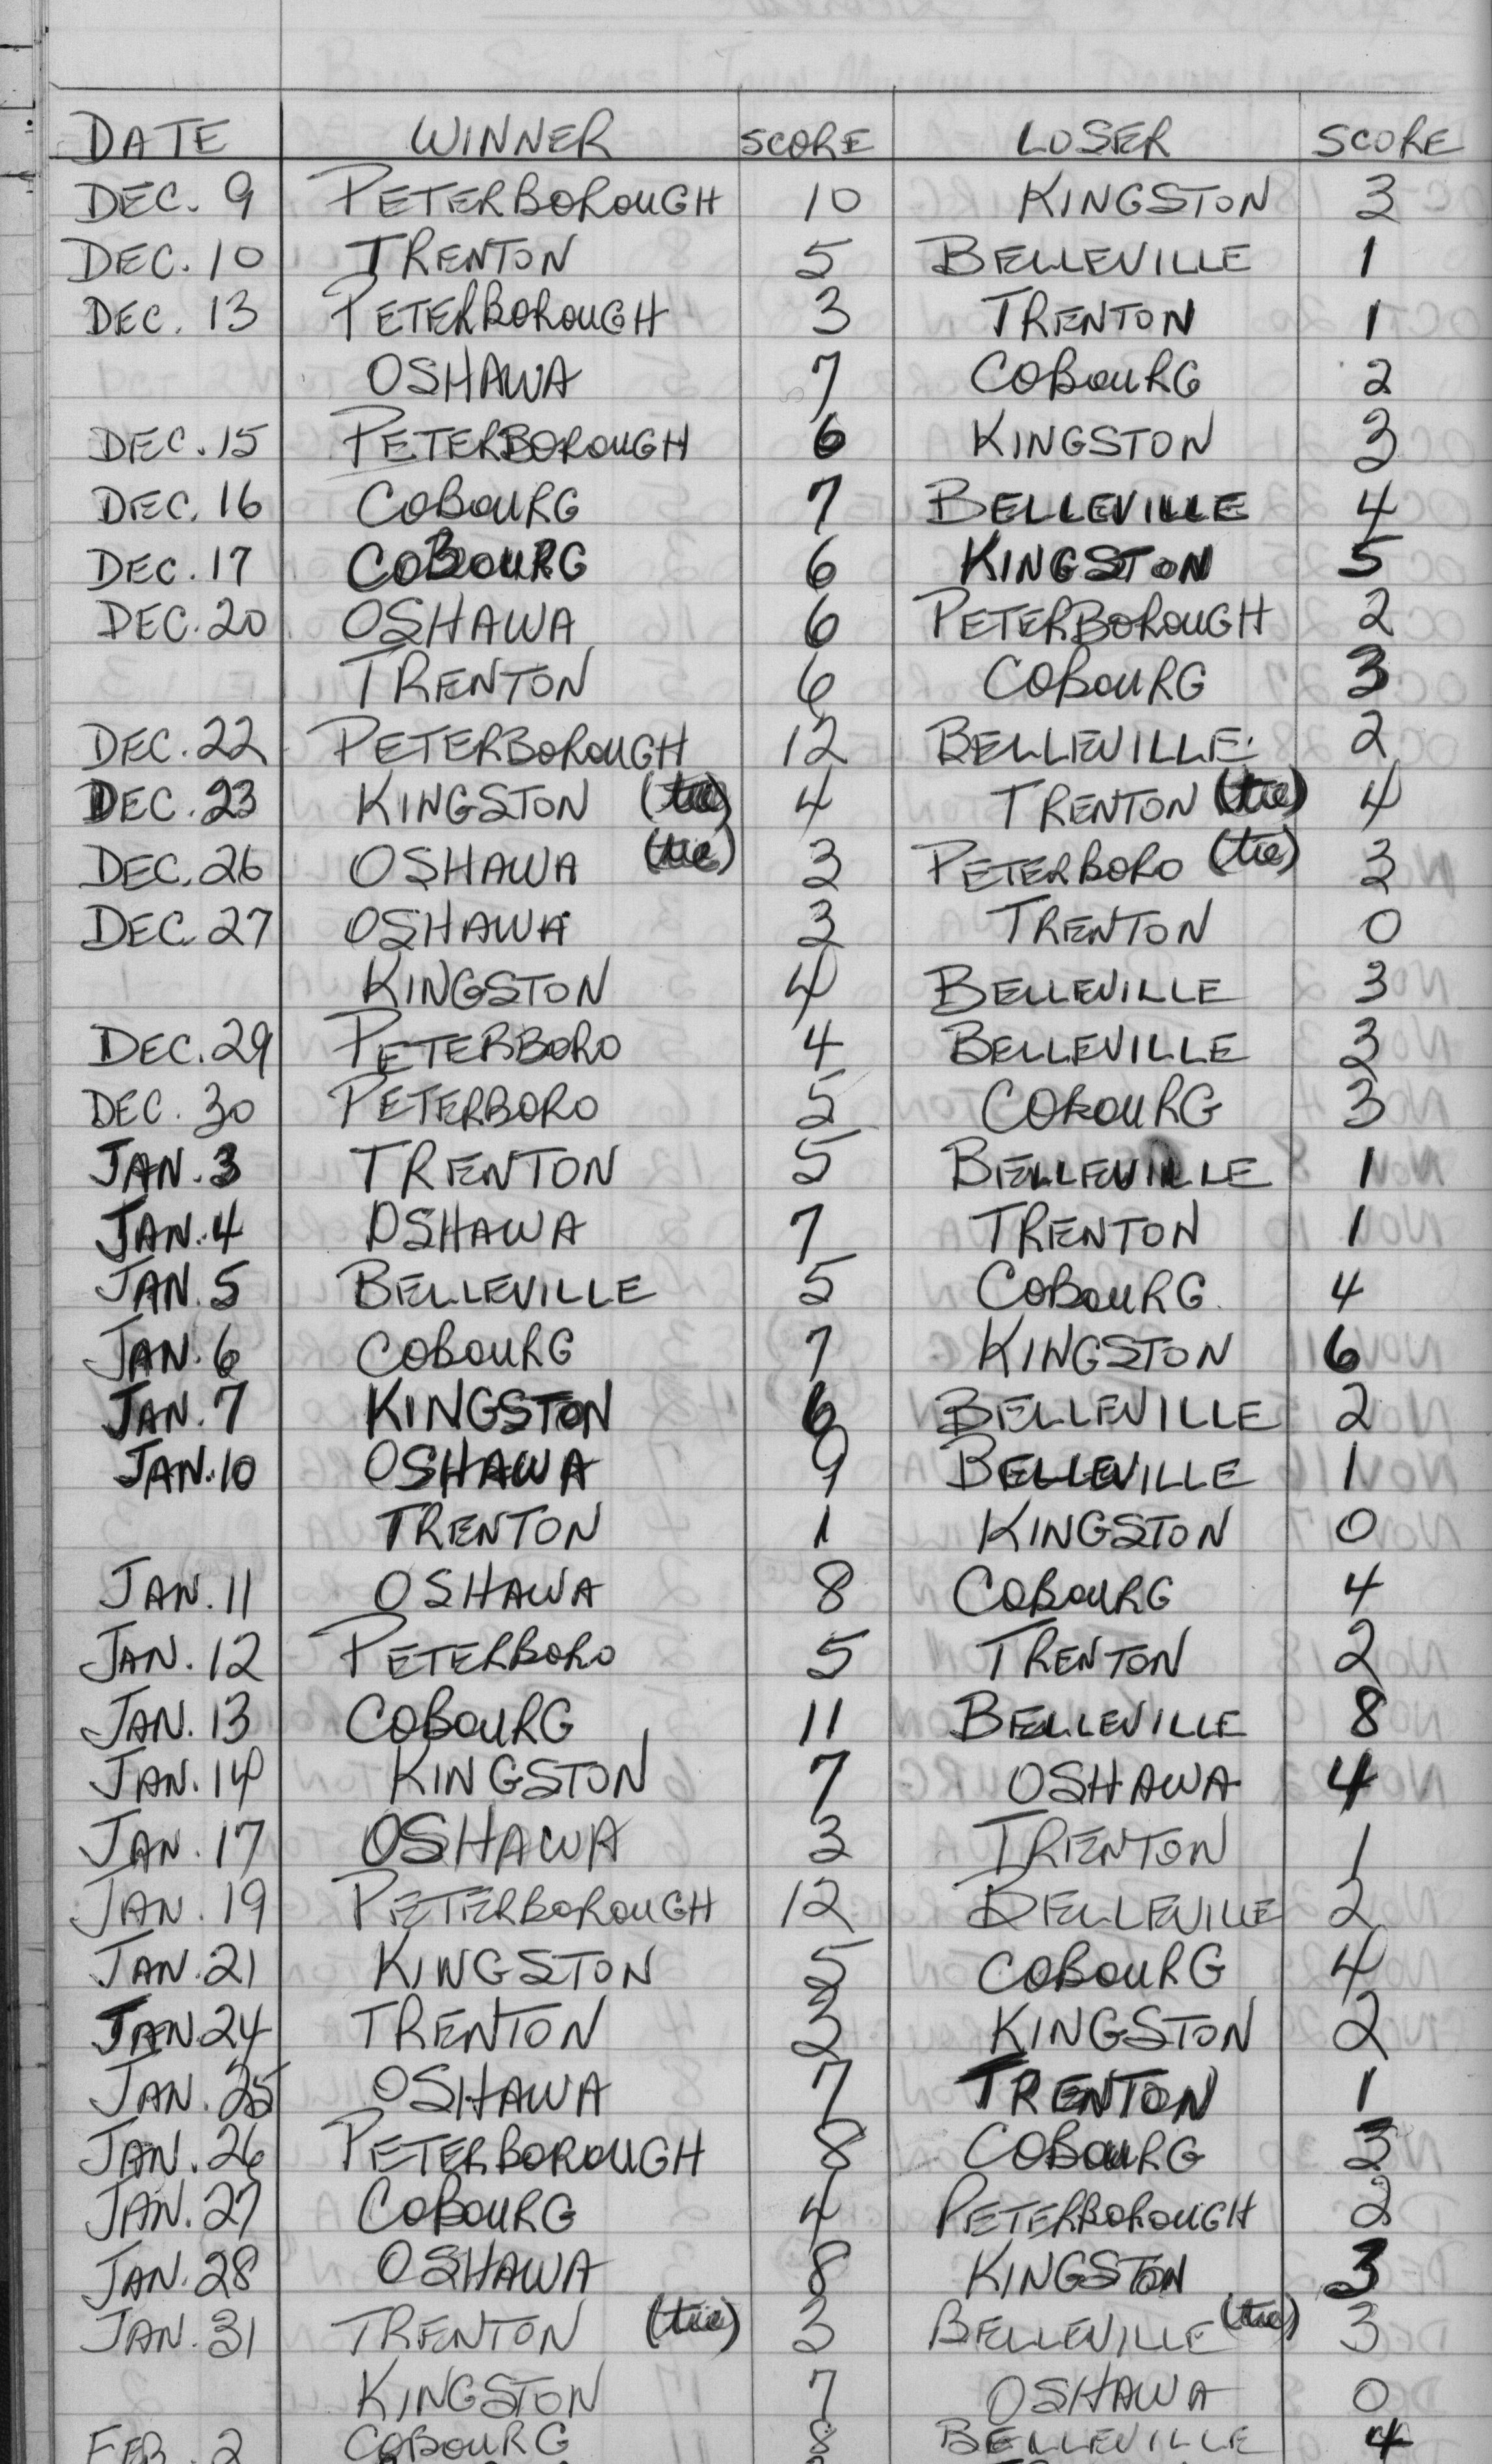 DATE WINNER SCORE LOSER SCORE
DEC. 9 PETERBOROUGH 10 KINGSTON 3
DEC. 10 TRENTON 5 BELLEVILLE 1
DEC. 13 PETERBOROUGH 3 TRENTON 1
OSHAWA 7 COBOURG 2
DEC. 15 PETERBOROUGH 6 KINGSTON 3
DEC. 16 COBOURG 7 BELLEVILLE 4
DEC. 17 COBOURG 6 KINGSTON 5
DEC. 20 OSHAWA 6 PETERBOROUGH 2
TRENTON 6 COBOURG 3
DEC. 22 PETERBOROUGH 12 BELLEVILLE 2
DEC. 23 KINGSTON (tie) 4 TRENTON (tie) 4
DEC. 26 OSHAWA (tie) 3 PETERBORO (tie) 3
DEC. 27 OSHAWA 3 TRENTON 0
KINGSTON 4 BELLEVILLE 3
DEC. 29 PETERBBORO 4 BELLEVILLE 3
DEC. 30 PETERBORO 5 COBOURG 3
JAN. 3 TRENTON 5 BELLEVILLE 1
JAN. 4 OSHAWA 7 TRENTON 1
JAN. 5 BELLEVILLE 5 COBOURG 4
JAN. 6 COBOURG 7 KINGSTON 6
JAN. 7 KINGSTON 6 BELLEVILLE 2
JAN. 10 OSHAWA 9 BELLEVILLE 1
TRENTON 1 KINGSTON 0
JAN. 11 OSHAWA 8 COBOURG 4
JAN. 12 PETERBORO 5 TRENTON 2
JAN. 13 COBOURG 11 BELLEVILLE 8
JAN. 14 KINGSTON 7 OSHAWA 4
JAN. 17 OSHAWA 3 TRENTON 1
JAN. 19 PETERBOROUGH 12 BELLEVILLE 2
JAN. 21 KINGSTON 5 COBOURG 4
JAN. 24 TRENTON 3 KINGSTON 2
JAN. 25 OSHAWA 7 TRENTON 1
JAN. 26 PETERBOROUGH 8 COBOURG 3
JAN. 27 COBOURG 4 PETERBOROUGH 2
JAN. 28 OSHAWA 8 KINGSTON 3
JAN. 31 TRENTON (tie) 3 BELLEVILLE (tie) 3
KINGSTON 7 OSHAWA 0
FEB. 2 COBOURG 8 BELLEVILLE 4